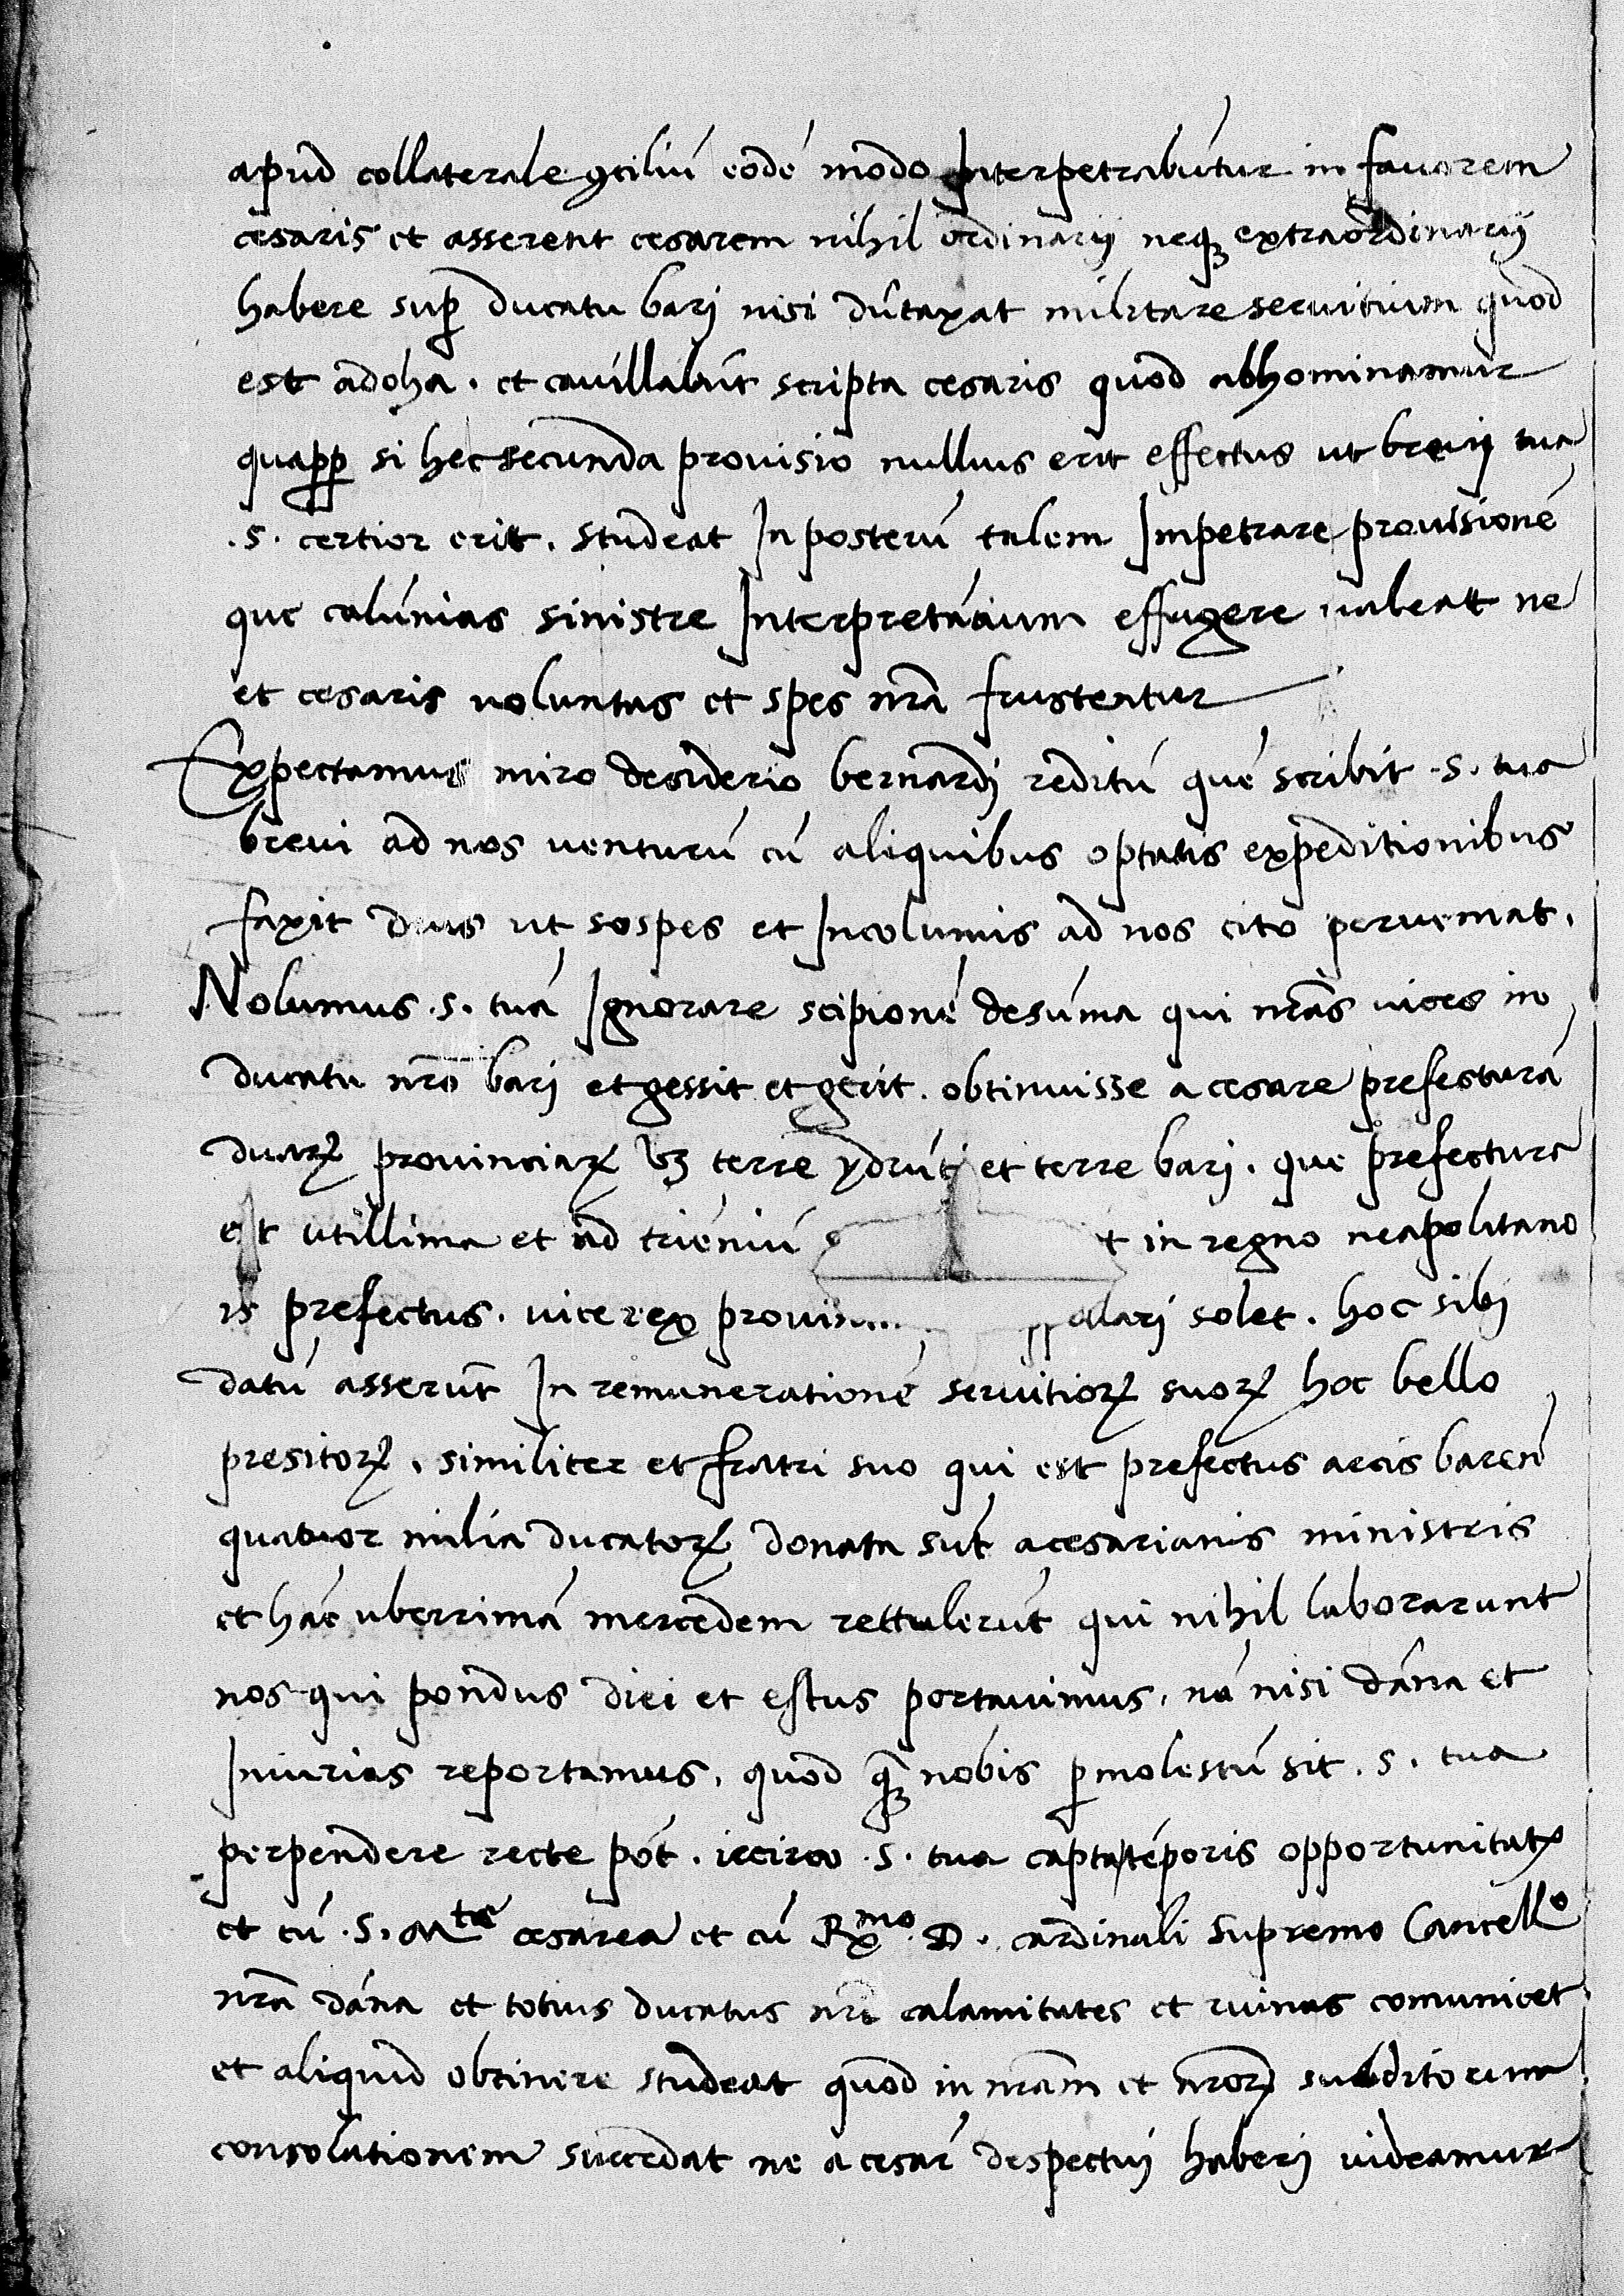 apud collaterale ꝯsiliú eodé modo Interpetrabútur in fauorem
cesaris et asserent cesarem nihil ordinarij neqꝫ extraordinarij
habere suꝑ ducatu barj nisi dútaxat militare seruitium quod
est adoha . et cauillabút scripta cesaris quod abhominamur
quaꝓꝑ si hec secunda prouisio nullius erit effectus ut breuij tua
.S. certior erit . studeat In posterú talem Impetrare prouisioné
que calúnias sinistre Interpretátium effugere ualeat ne
et cesaris voluntas et spes nr̃a frustentur
Expectamus miro desiderio bernardj reditú qué scribit .S. tua
breui ad nos venturú cú aliquibus optatis expeditionibus
faxit deus ut sospes et Incolumis ad nos cito perueniat .
Nolumus .S. tuá Ignorare scipioné desúma qui nr̃as uices in
ducatu nr̃o barj et gessit et gerit . obtinuisse a cesare prefecturá
duarꝝ prouinciarꝝ vꝫ terre ydrútj et terre barj . que prefectura
est utillima et ad triéniú t in regno neapolitano
is prefectus . vice rex prouin... ppellarj solet . hoc sibj
datú asserút In remunerationé seruitiorꝝ suorꝝ hoc bello
presitorꝝ . similiter et fratri suo qui est prefectus arcis baren̄
quatuor milia ducatorꝝ donata sút a cesarianis ministris
et hác uberrimá mercedem rettulerút qui nihil laborarunt
nos qui pondus diei et estus portauimus . nó nisi dána et
Iniurias reportamus . quod qȝ̃ nobis ꝑmolestú sit . S . tua
perpendere recte pót . iccirco .S. tua captata téporis opportunitate
et cú .S. Mte cesarea et cú Rxmo. D . cardinali supremo Cancello
nr̃a dána et totius ducatus nr̃i calamitates et ruinas comunicet
et aliquid obtinere studeat quod in nr̃am et nr̃orꝝ subditorum
consolationem succedat ne a cesaré despectuj haberj uideamur